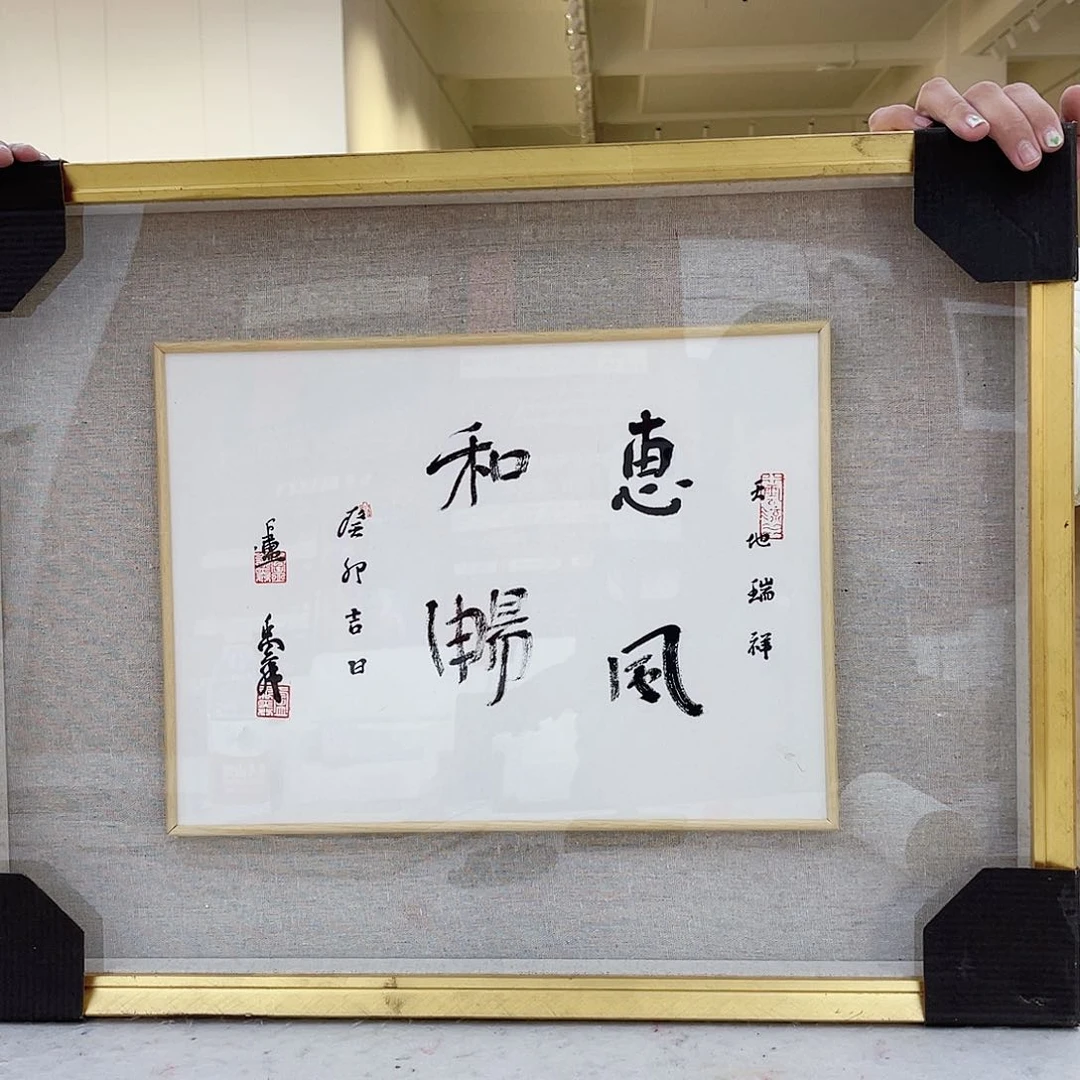 天地瑞祥
惠風
和暢
癸卯吉日
盧禹舜